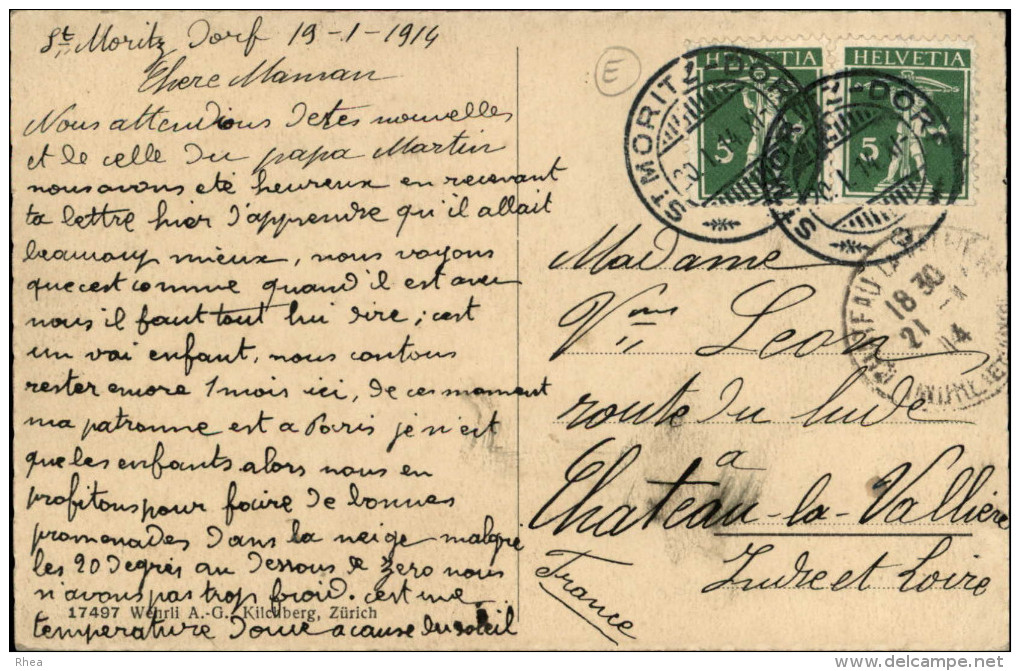 St Moritz Dorf 19-1-1914
Chere Maman
Nous attendions de tes nouvelles
et le celle du papa Martin
nous avons eté heureux en recevant
ta lettre hier d'apprendre qu'il allait
beaucoup mieux, nous voyons
que c'est comme quand il est avec
nous il faut tout lui dire; c'est
un vai enfant, nous contons
rester encore 1 mois ici, de ces moment
ma patronne est a Paris je n'est
que les enfants alors nous en
profitons pour faire de bonnes
promenades dans la neige malgre
les 20 degrés au dessous de zero nous
n'avons pas trop froid. c'est une
17497 Wehrli A.-G., Kilchberg, Zürich
temperature douce a cause du soleil
E
HELVETIA
5
HELVETIA
5
ST MORITZ-DORF
20.I.14
ST MORITZ-DORF
20.I.14
18 30
21
14
Madame
Vve Leon
route du lude
à
Chateau-la-Vallière
Indre et Loire
France
Rhea
www.delcampe.net